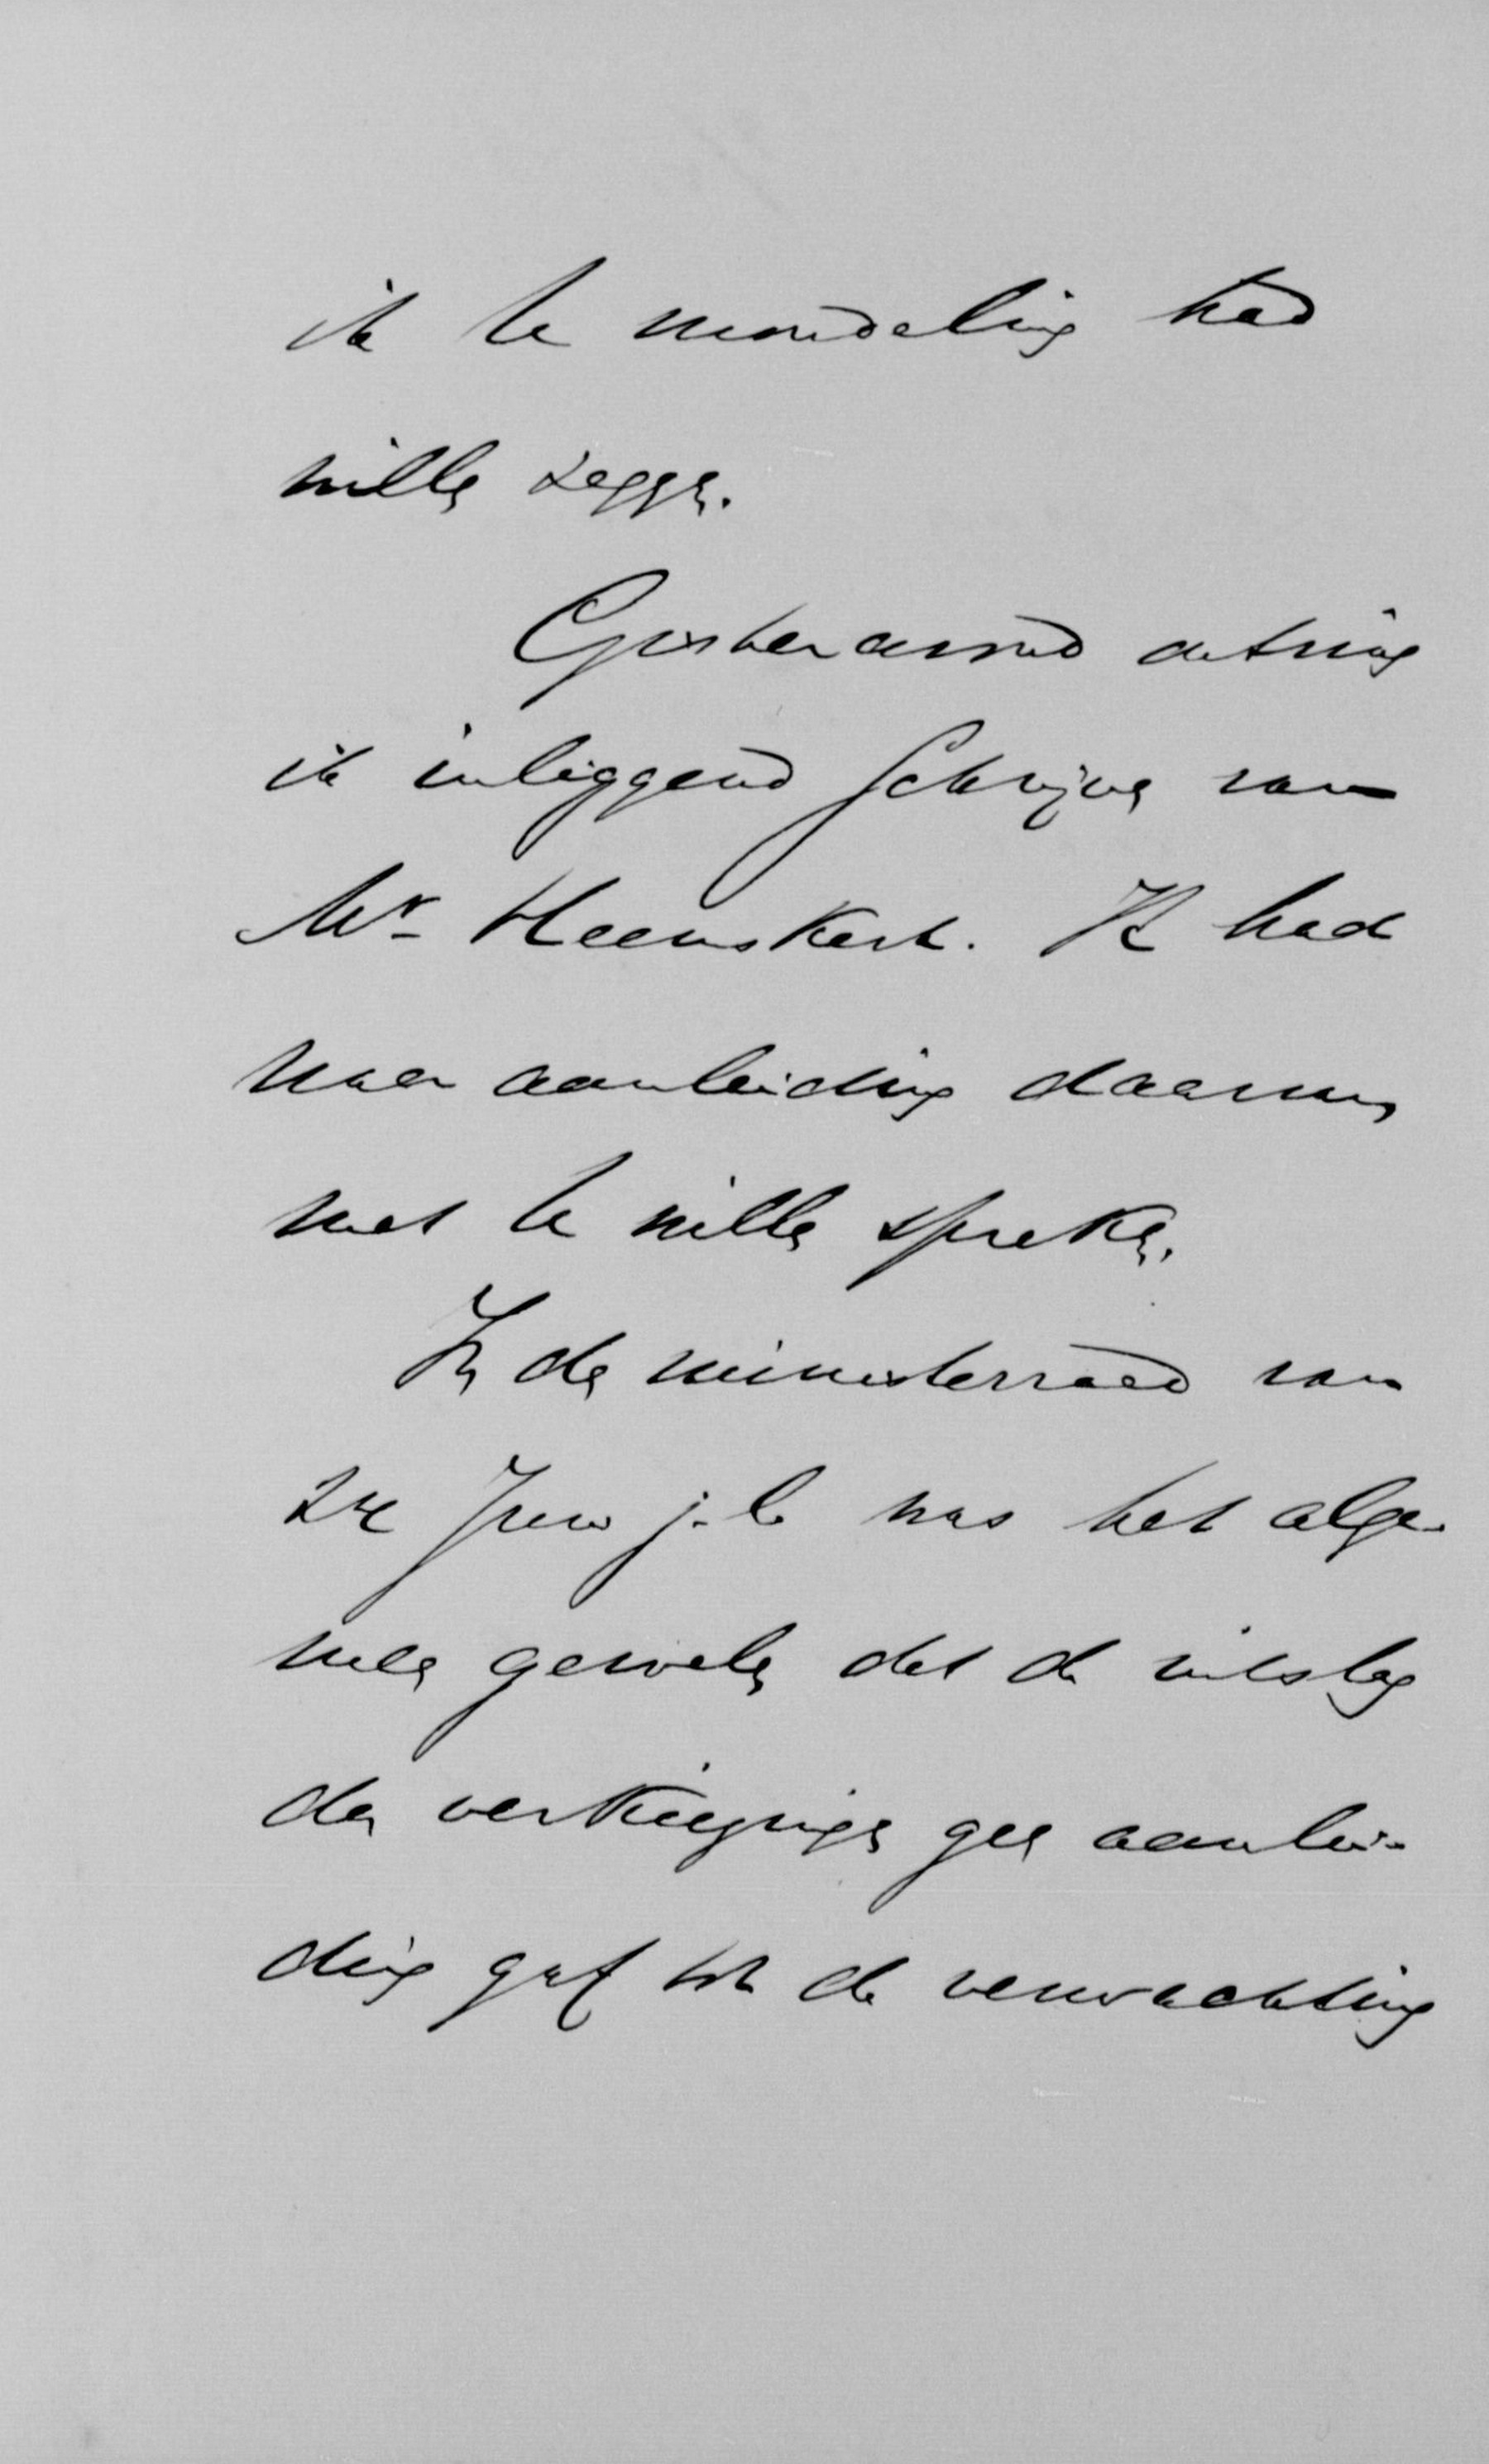 ik U mondeling had
willen zeggen.
Gisteravond ontving
ik inliggend schrijven van
Mr. Heemskerk. Ik had
naar aanleiding daarvan
met U willen spreken.
In de ministerraad van
Juni j.l. was het alge-
meen gevoelen dat de uitslag
der verkiezingen geen aanlei-
ding gaf tot de verwachting